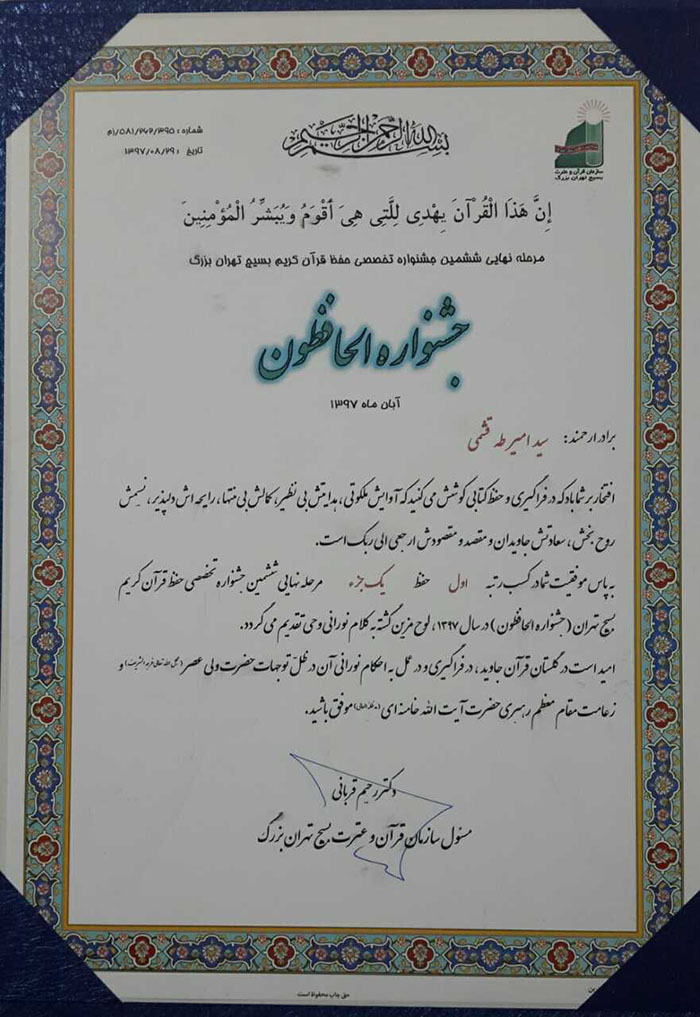 بسم الله الرحمن الرحیم
شماره : ۵۸۱/۲۶۲/۳۹۵/م
تاریخ : ۱۳۹۷/۰۸/۲۹
سازمان قرآن و عترت
بسیج تهران بزرگ
إِنَّ هَذَا الْقُرْآنَ يِهْدِى لِلَّتِى هِىَ أَقْوَمُ وَيُبَشِّرُ الْمُؤْمِنِينَ
مرحله نهایی ششمین جشنواره تخصصی حفظ قرآن کریم بسیج تهران بزرگ
جشنواره الحافظون
آبان ماه ۱۳۹۷
برادر ارجمند: سید امیرطه قشمی
افتخار بر شما باد که در فراگیری و حفظ کتابی کوشش می کنید که آوایش ملکوتی، هدایتش بی نظیر، کمالش بی منتها، رایحه اش دلپذیر، نسیمش
روح بخش، سعادتش جاویدان و مقصد و مقصودش ارجعی الی ربک است.
به پاس موفقیت شما در کسب رتبه اول حفظ یک جزء مرحله نهایی ششمین جشنواره تخصصی حفظ قرآن کریم
بسیج تهران (جشنواره الحافظون) در سال ۱۳۹۷، لوح مزین گشته به کلام نورانی وحی تقدیم می گردد.
امید است در گلستان قرآن جاوید، در فراگیری و در عمل به احکام نورانی آن در ظل توجهات حضرت ولی عصر (عجل الله تعالی فرجه الشریف) و
زعامت مقام معظم رهبری حضرت آیت الله خامنه ای (مدظله العالی) موفق باشید.
دکتر رحیم قربانی
مسئول سازمان قرآن و عترت بسیج تهران بزرگ
حق چاپ محفوظ است